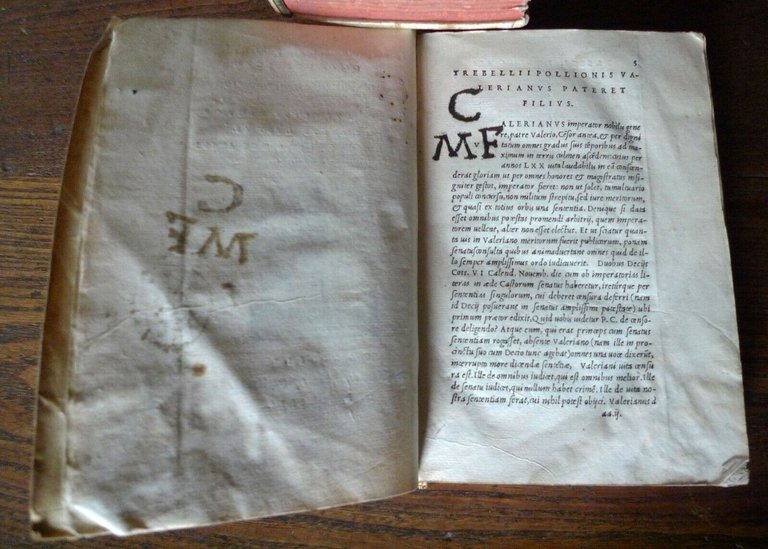 5
TREBELLII POLLIONIS VA-
LERIANVS PATER ET
FILIVS.
C
M F
ALERIANVS imperator nobilis gene
re, patre Valerio, Cẽsor antea, & per digni
tatum omnes gradus suis tẽporibus ad ma-
ximum in terris culmen
annos LXX uita laudabili in eã conscen-
derat gloriam ut per omnes honores & magistratus insi-
gniter gestos, imperator fieret: non ut solet, tumultuario
populi concursu, non militum strepitu, sed iure meritorum,
& quasi ex totius orbis una sententia. Denique si data
esset omnibus potestas promendi arbitrij, quem impera-
torem uellent, alter non esset electus. Et ut sciatur quan-
ta uis in Valeriano meritorum fuerit publicorum, ponam
senatusconsulta quibus animaduertant omnes quid de il-
lo semper amplissimus ordo iudicauerit. Duobus Decijs
Coss. VI Calend. Nouemb. die cum ob imperatorias li-
teras in æde Castorum senatus haberetur, iretúrque per
sententias singulorum, cui deberet censura deferri (nam
id Decij posuerant in senatus amplissimi potestate) ubi
primum prætor edixit, Quid uobis uidetur P.C. de censo-
re deligendo? Atque eum, qui erat princeps cum senatus
sententiam rogasset, absente Valeriano (nam ille in pro-
cinctu suo cum Decio tunc agebat) omnes una uoce dixerũt,
interrupto more dicendæ sententiæ, Valeriani uita censu
ra est. Ille de omnibus iudicet, qui est omnibus melior. Ille
de senatu iudicet, qui nullum habet crimẽ. Ille de uita no-
stra sententiam ferat, cui nihil potest obijci. Valerianus à
aa.ij.